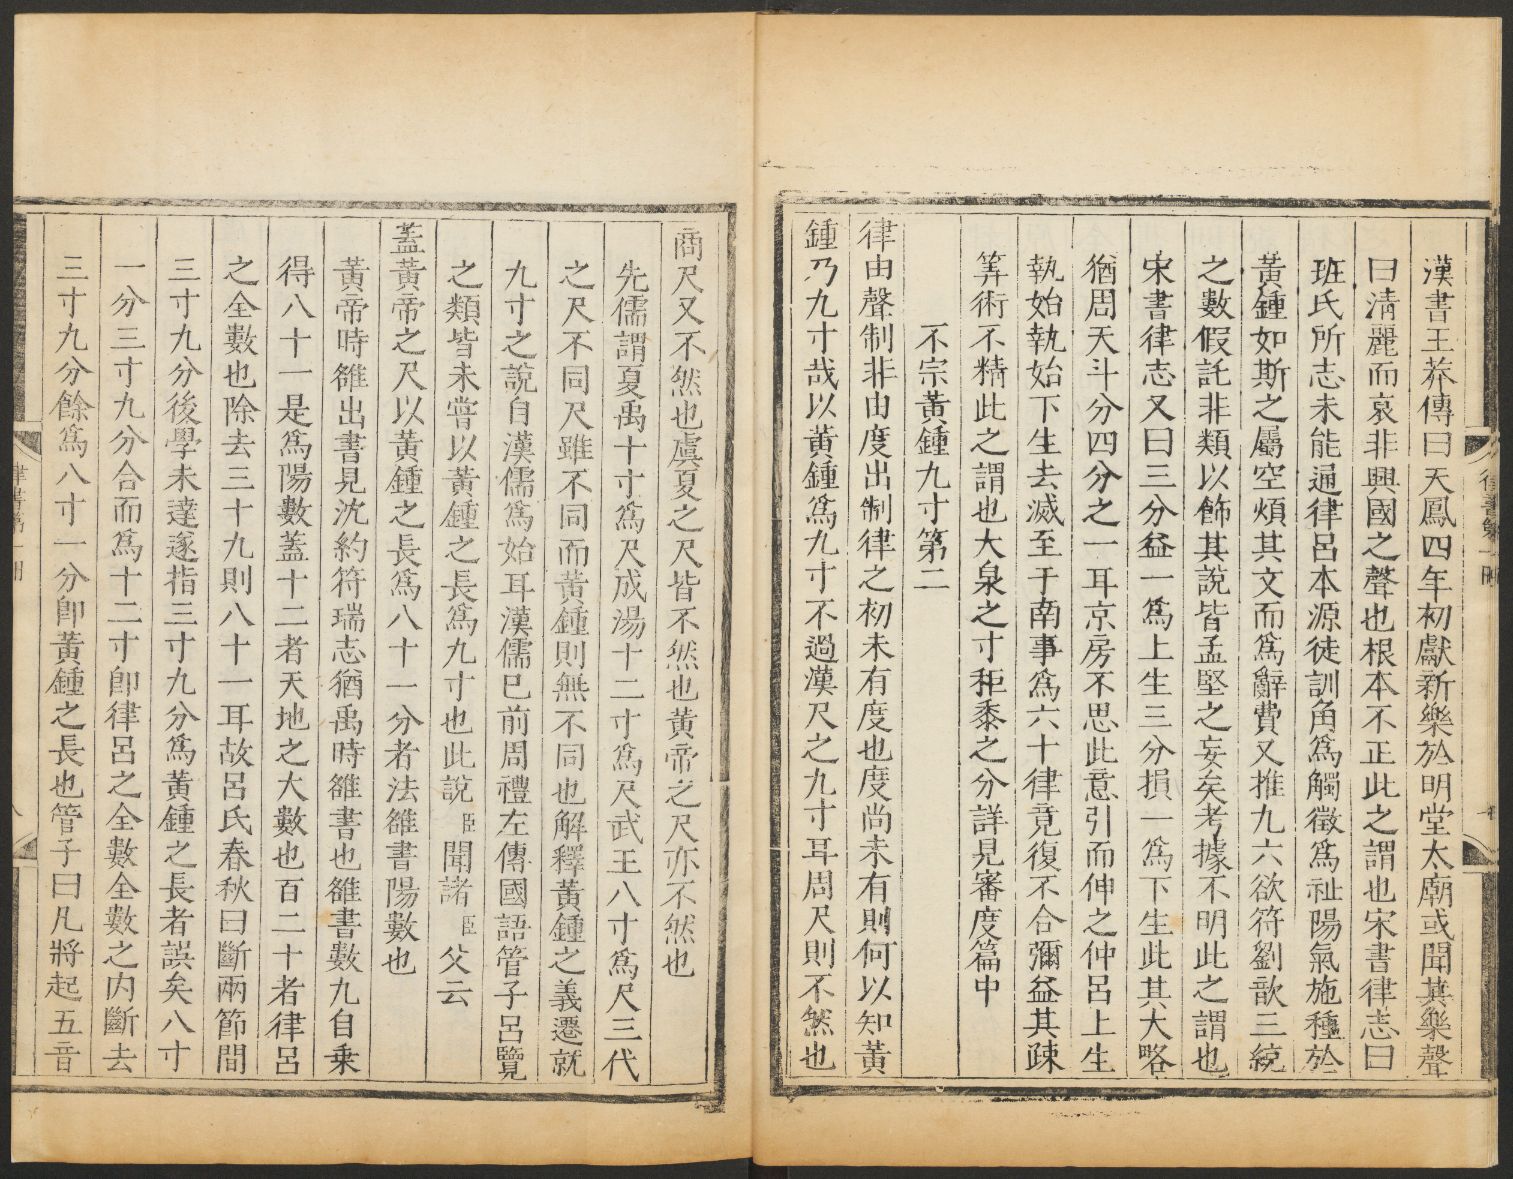 漢書王莽傳曰天鳳四年初獻新樂於明堂太廟或聞其樂聲
曰淸麗而哀非興國之聲也根本不正此之謂也宋書律志曰
班氏所志未能通律呂本源徒訓角爲觸徵爲祉陽氣施種於
黃鍾如斯之屬空煩其文而爲辭費又推九六欲符劉歆三統
之數假託非類以飾其說皆孟堅之妄矣考據不明此之謂也
宋書律志又曰三分益一爲上生三分損一爲下生此其大略
猶周天斗分四分之一耳京房不思此意引而伸之仲呂上生
執始執始下生去滅至于南事爲六十律竟復不合彌益其疎
筭術不精此之謂也大泉之寸秬黍之分詳見審度篇中
不宗黃鍾九寸第二
律由聲制非由度出制律之初未有度也度尚未有則何以知黃
鍾乃九寸哉以黃鍾爲九寸不過漢尺之九寸耳周尺則不然也
商尺又不然也虞夏之尺皆不然也黃帝之尺亦不然也
先儒謂夏禹十寸爲尺成湯十二寸爲尺武王八寸爲尺三代
之尺不同尺雖不同而黃鍾則無不同也解釋黃鍾之義遷就
九寸之說自漢儒爲始耳漢儒已前周禮左傳國語管子呂覽
之類皆未嘗以黃鍾之長爲九寸也此說臣聞諸臣父云
蓋黃帝之尺以黃鍾之長爲八十一分者法雒書陽數也
黃帝時雒出書見沈約符瑞志猶禹時雒書也雒書數九自乗
得八十一是爲陽數蓋十二者天地之大數也百二十者律呂
之全數也除去三十九則八十一耳故呂氏春秋曰斷兩節間
三寸九分後學未達遂指三寸九分爲黃鍾之長者誤矣八寸
一分三寸九分合而爲十二寸卽律呂之全數全數之內斷去
三寸九分餘爲八寸一分卽黃鍾之長也管子曰凡將起五音